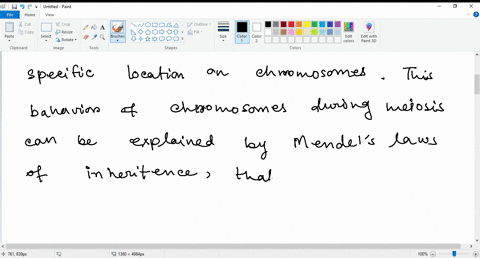 Untitled - Paint
File
Home
View
Paste
Select
Brushes
Outline
Fill
Size
Color 1
Color 2
Edit colors
Edit with Paint 3D
Clipboard
Image
Tools
Shapes
Colors
specific location on chromosomes. This
behavior of chromosomes during meiosis
can be explained by Mendel's laws
of inheritence, that
761, 838px
1380 × 4984px
100%